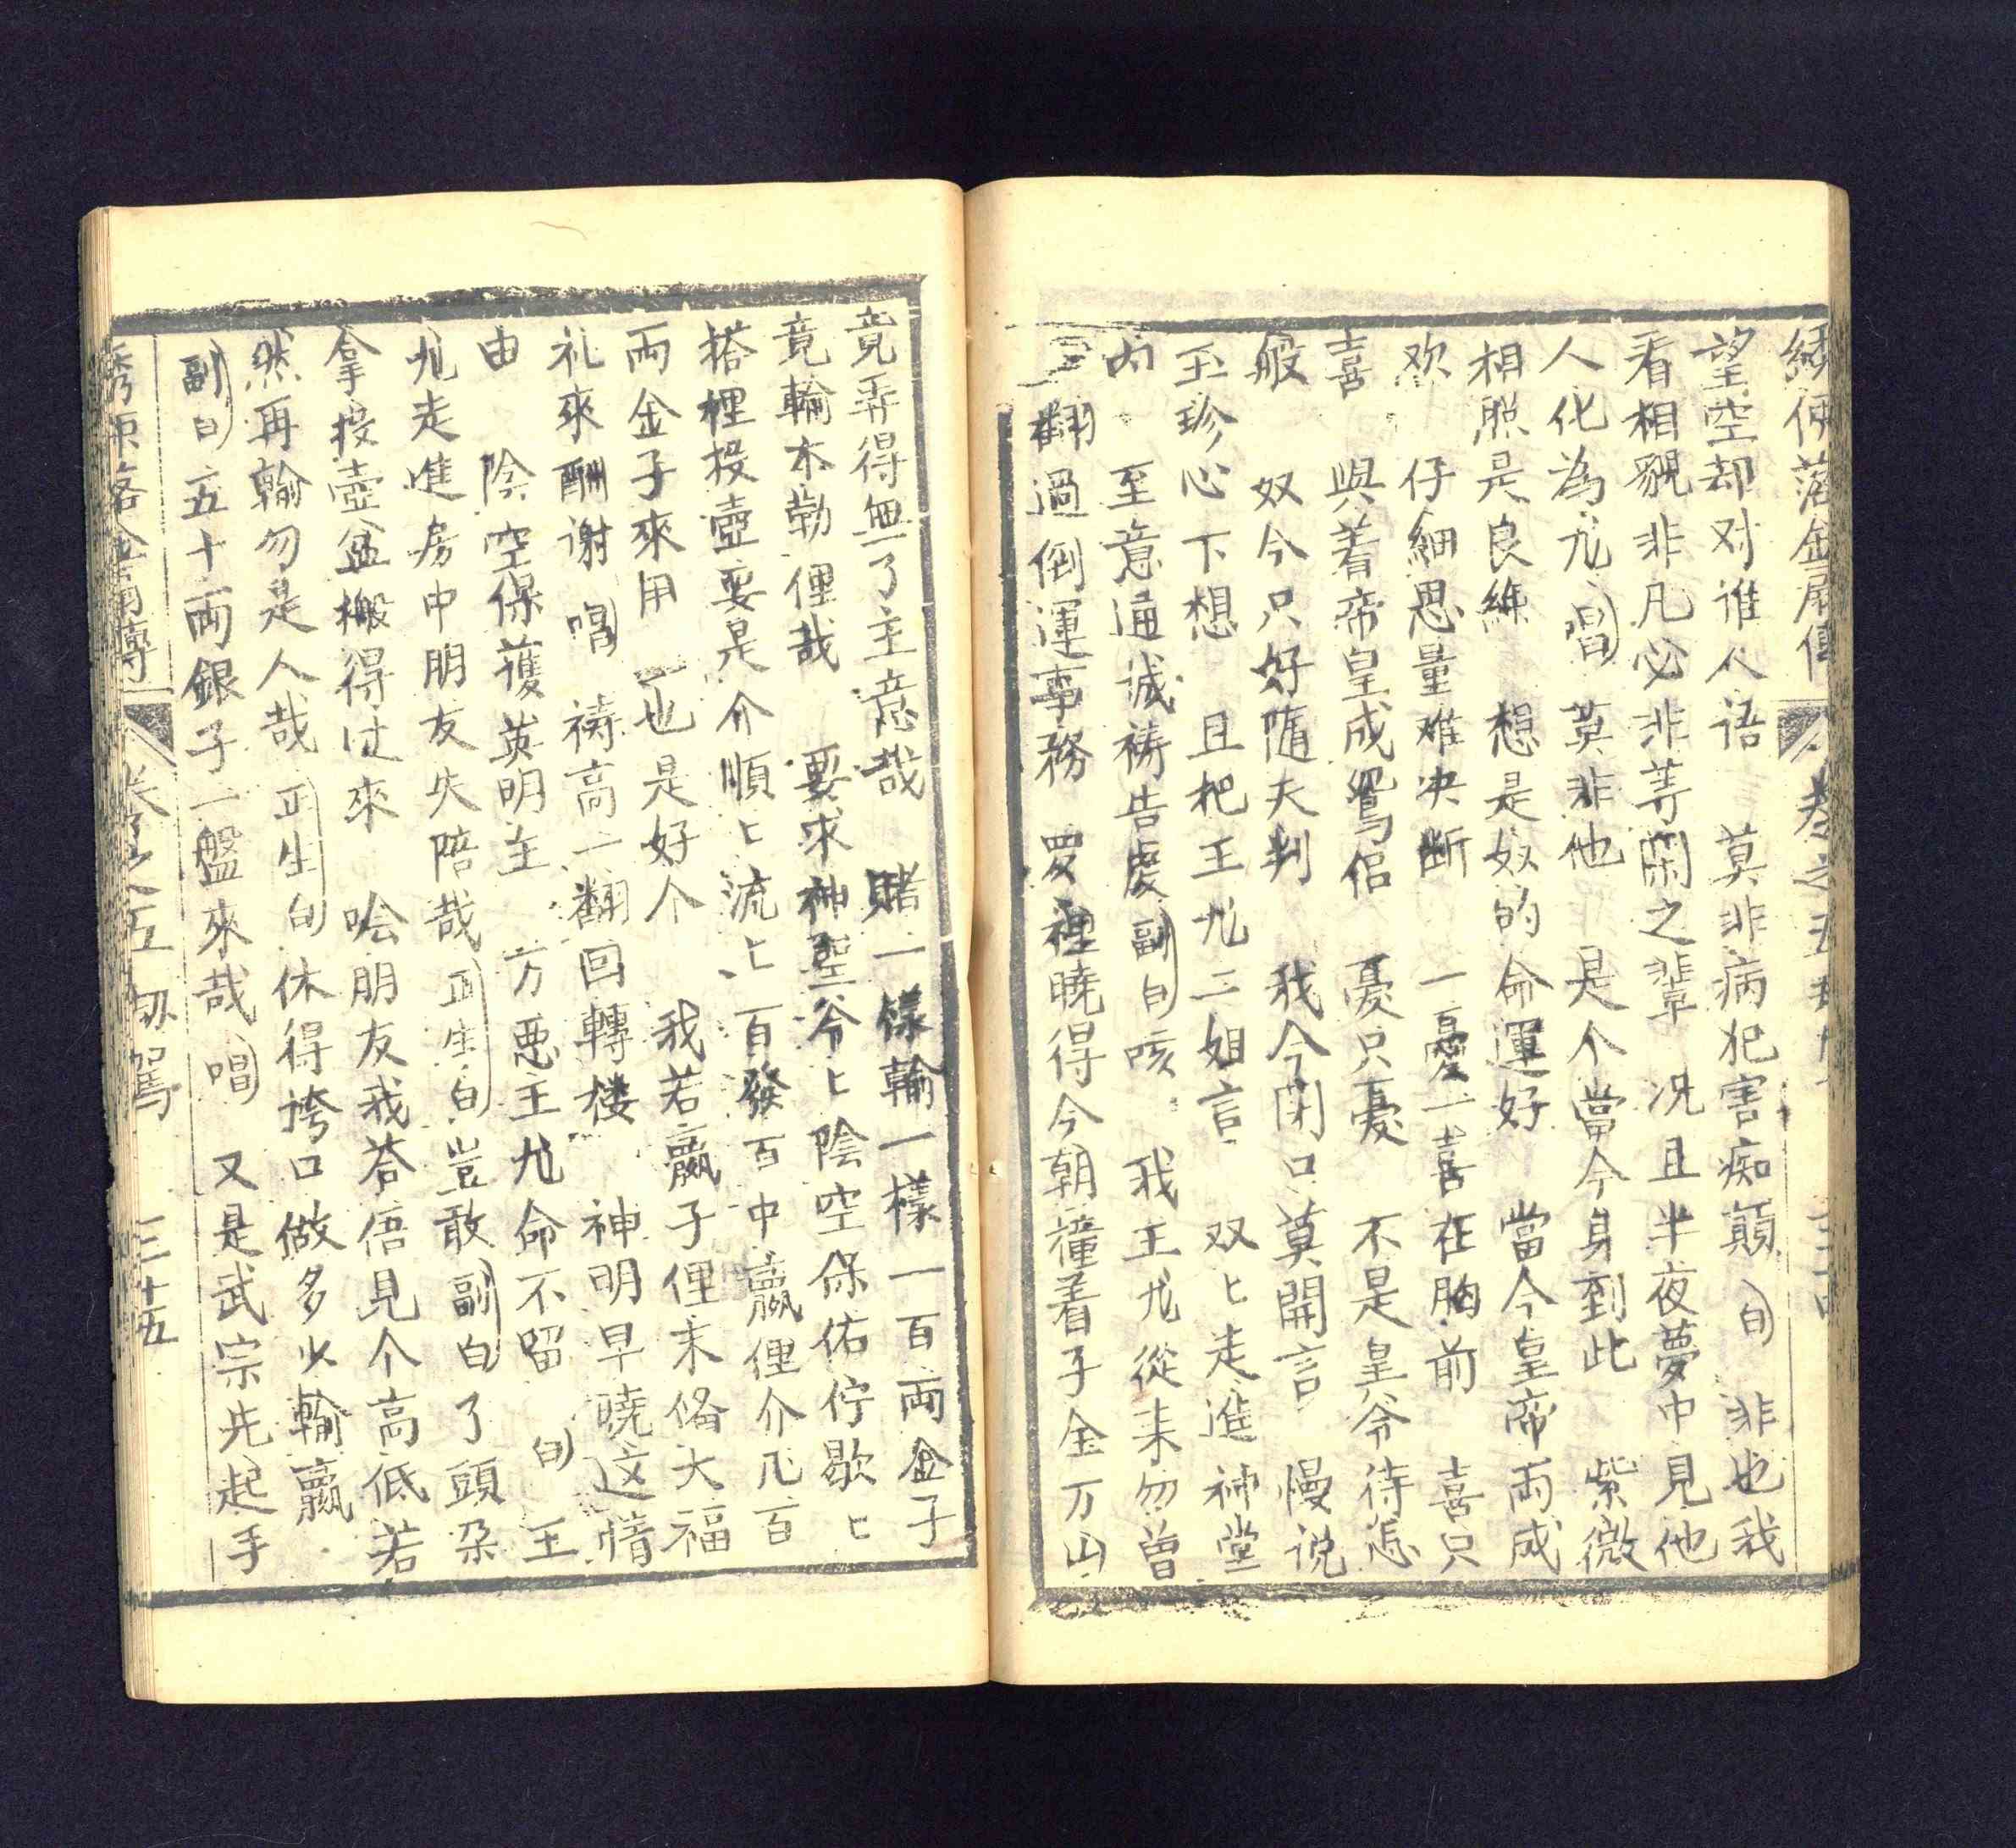 望空却对谁人语 莫非病犯害痴顛 白 非也我
看相貌非凡必非等閑之輩 况且半夜夢中見他
人化為尨 唱 莫非他 是个當今身到此 紫微
相照是良緣 想是奴的命運好 當今皇帝两成
欢 仔細思量难决断 一憂一喜在胸前 喜只
喜 與着帝皇成鴛侣 憂只憂 不是皇爷待怎
般 奴今只好隨夫判 我今閉口莫開言 慢说
玉珍心下想 且把王尨二姐言 双匕走進神堂
内 至意通诚祷告虔 副白 咳 我王尨從来勿曾
翻過倒運事務 里曉得今朝撞着子金万山
竟弄得無了主意哉 賭一樣輸一樣 一百両金子
竟輸木勒俚哉 要求神聖爷匕陰空保佑佇歇匕
搭裡投壺要是介順匕流匕百發百中贏俚介几百
両金子來用 也是好个 我若贏子俚末俻大福
礼來酬谢 唱 祷髙一翻回轉楼 神明早曉这情
由 陰空保護英明主 方悪王尨命不留 白 王
尨走進房中朋友失陪哉 正生白 豈敢 副白 了頭朶
拿投壺盆搬得过來 哙朋友我荅俉見个高低若
然再輸勿是人哉 正生白 休得垮口做多少輸贏
副白 五十両銀子一盤來哉 唱 又是武宗先起手
卷之五 三十五